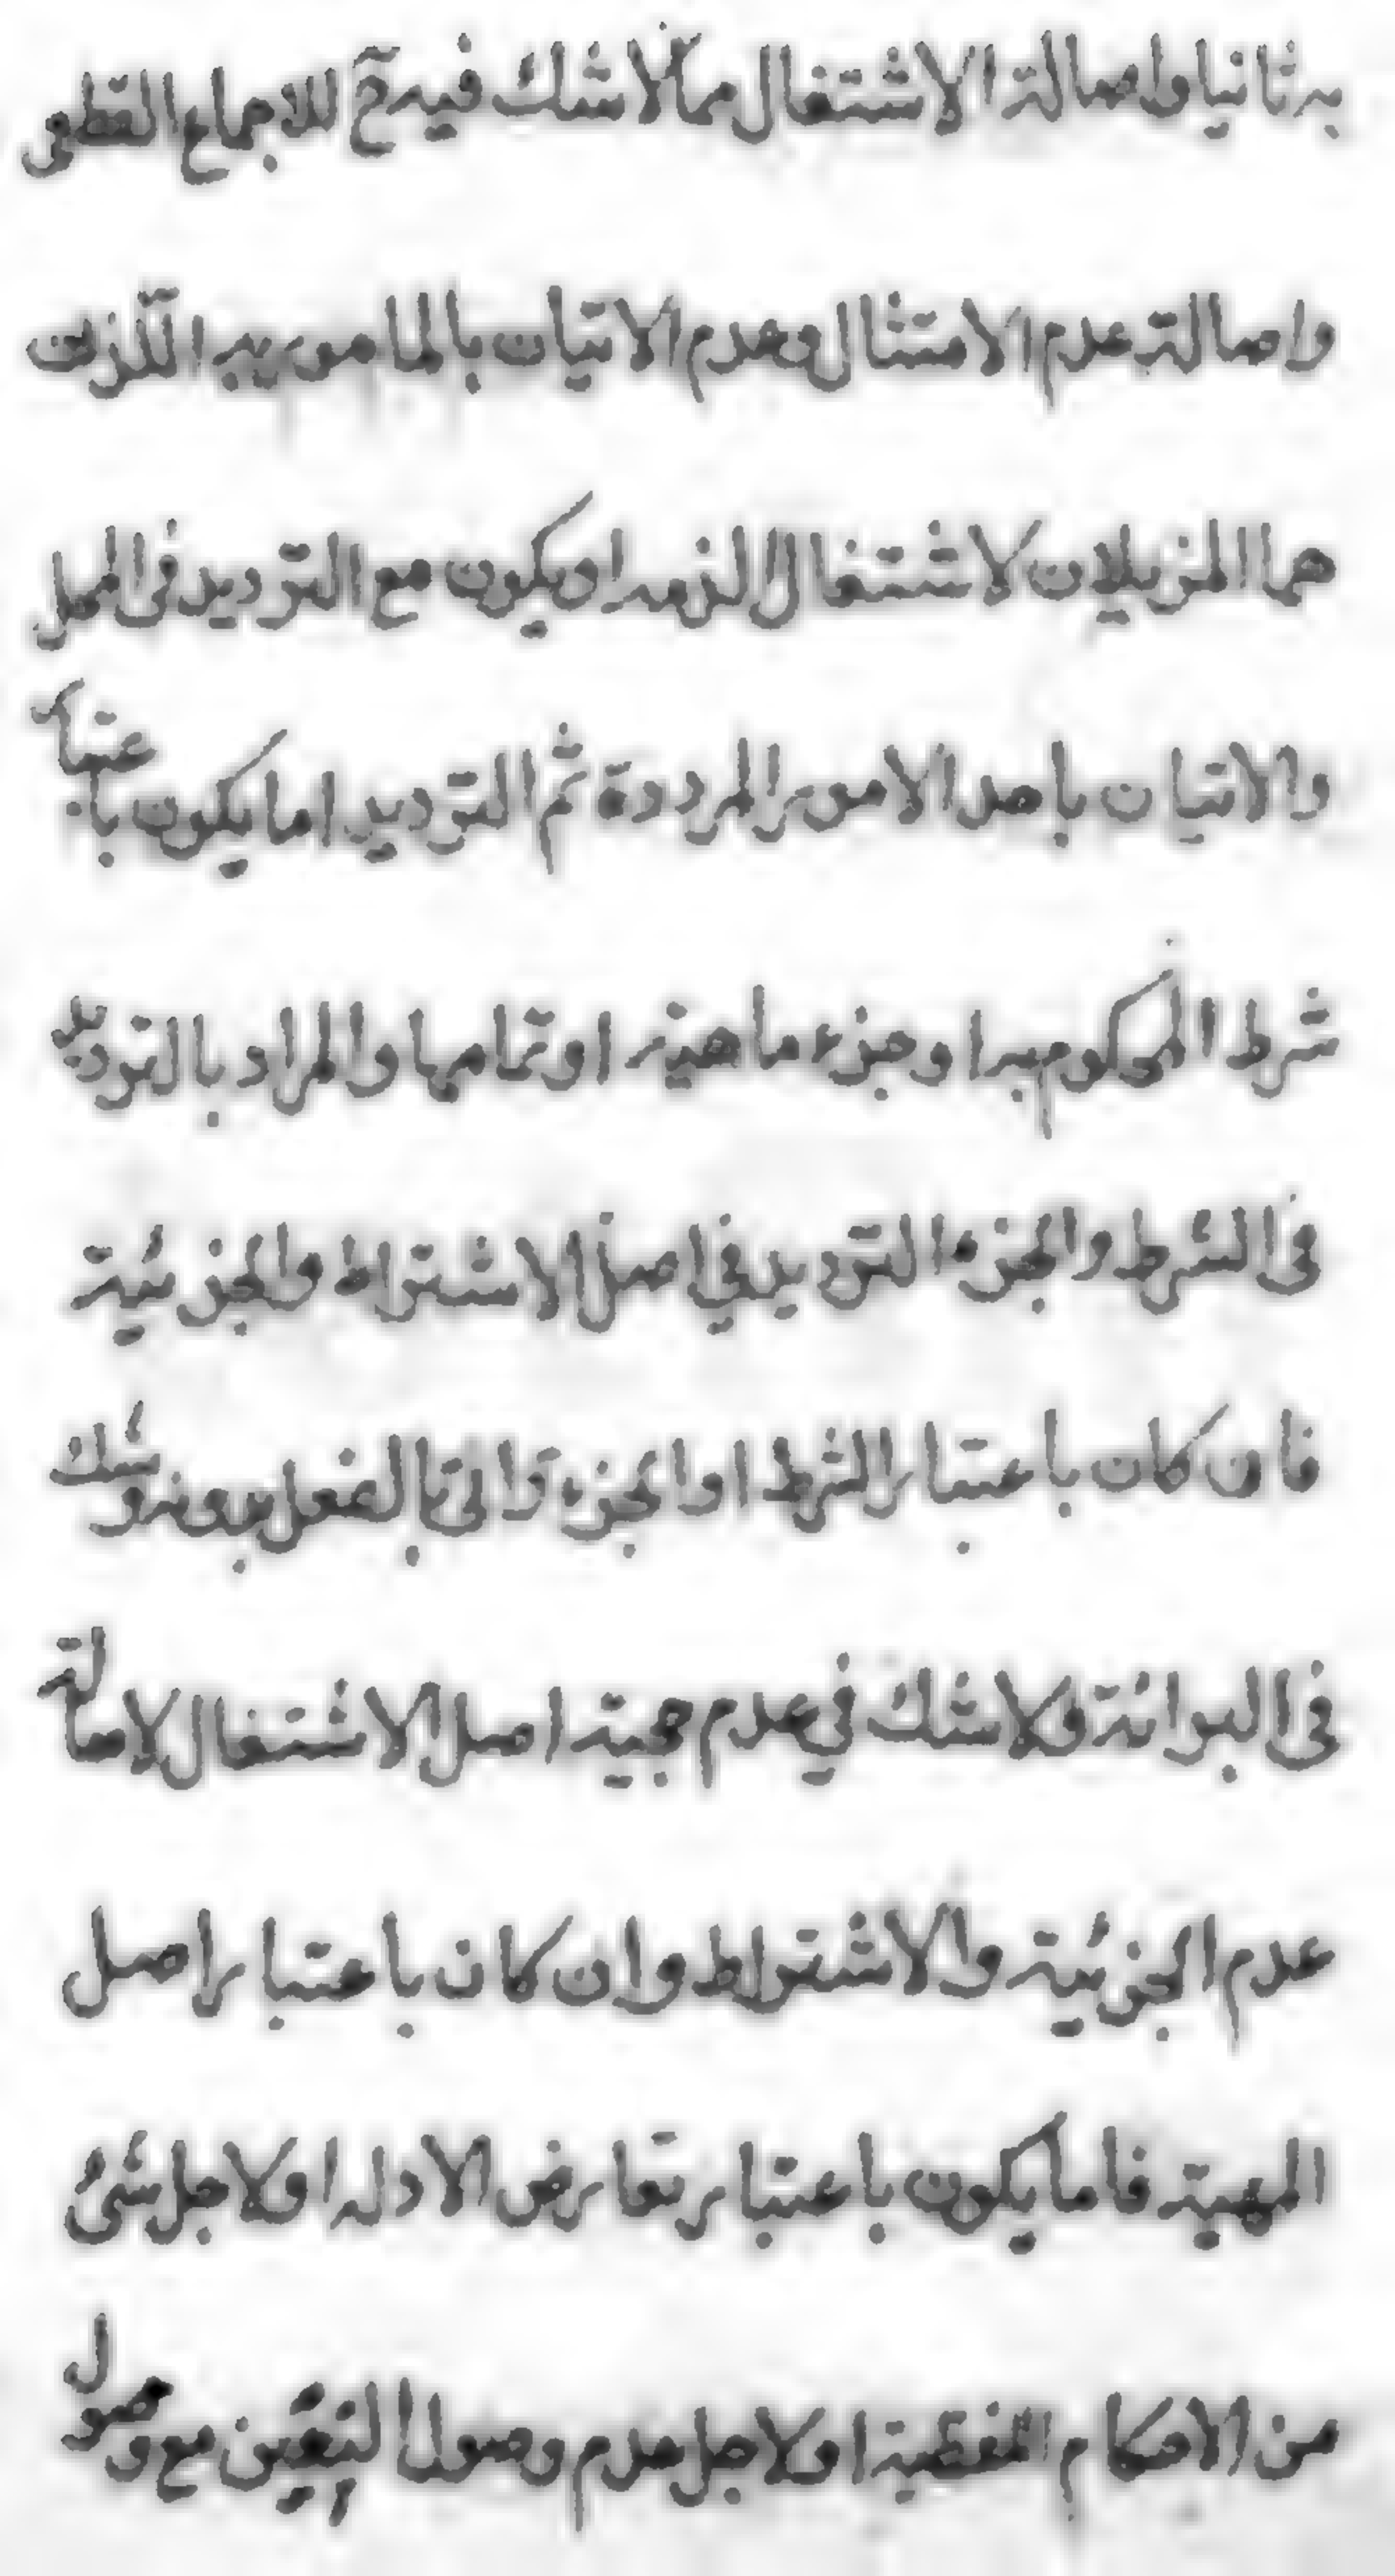 به ثانيا واصالة الاشتغال ممّا لاشك فيه ح للاجماع القطعى
واصالة عدم الامتثال وعدم الاتيان بالمامور به اللّذين
هما المزيلان لاشتغال الذمه او يكون مع الترديد فى المحل
والاتيان باحد الامور المرددة ثم الترديد اما يكون باعتبار
شرط المحكوم به او جزء ماهيته او تمامها والمراد بالترديد
فى الشرط والجزء الترديد في اصل الاشتراط والجزئية
فان كان باعتبار الشرط او الجزء واتى بالفعل بدونه وشك
فى البرائة ولاشك في عدم حجية اصل الاشتغال لاصالة
عدم الجزئية والاشتراط وان كان باعتبار اصل
المهية فاما يكون باعتبار تعارض الادله او لاجل شئ
من الاحكام اللفظية او لاجل عدم وصول التعيين مع وصول